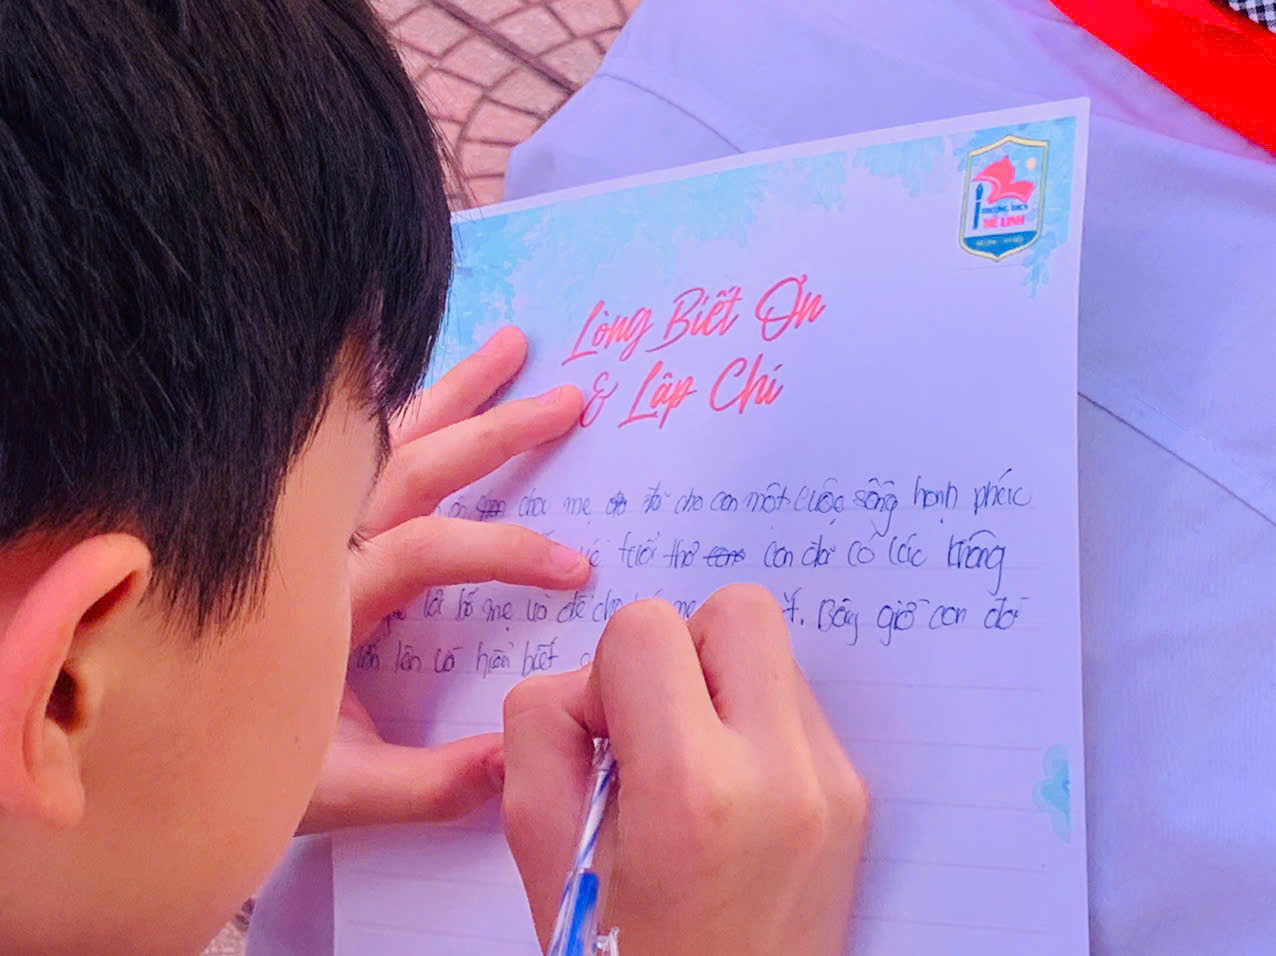 TRƯỜNG THCS
MÊ LINH
Lòng Biết Ơn
& Lập Chí
ơn cha mẹ đã cho con một cuộc sống hạnh phúc
về tuổi thơ con đã có lúc không
lời bố mẹ và để cho bố mẹ . Bây giờ con đã
lớn lên có hiểu biết